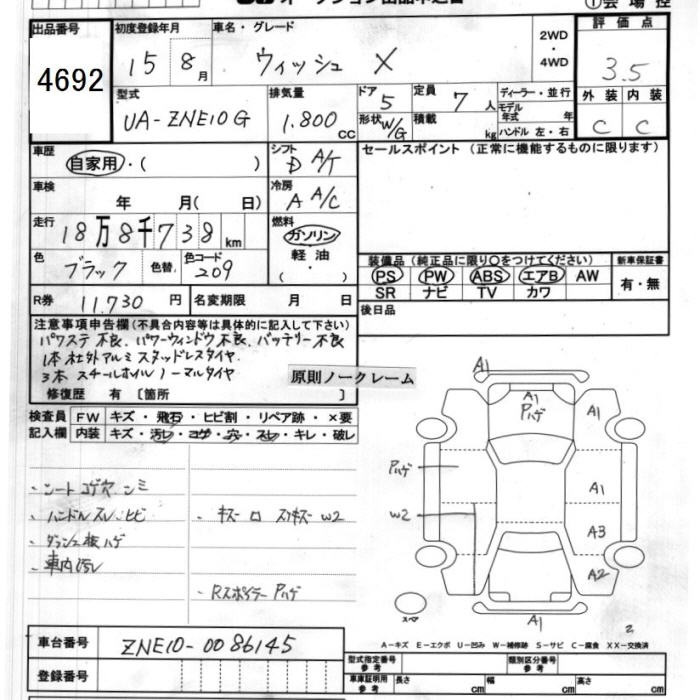 オークション出品申込書
① 会場控
出品番号 初度登録年月 車名・グレード 2WD・4WD 評価点
4692 15 8月 ウィッシュ X 3.5
型式 排気量 ドア 5 定員 7人 ディーラー・並行 外装 内装
UA-ZNE10G 1.800cc 形状 W/G 積載 kg モデル年式 年 C C
ハンドル 左・右
車歴 自家用・( ) シフト D A/T セールスポイント(正常に機能するものに限ります)
車検 年 月( 日) 冷房 A A/C
走行 18万8千738km 燃料 ガソリン
軽油・( )
色 ブラック 色替 色コード 209
装備品(純正品に限り○をつけてください) 新車保証書
PS PW ABS エアB AW 有・無
SR ナビ TV カワ
R券 11,730円 名変期限 月 日
後日品
注意事項申告欄(不具合内容等は具体的に記入して下さい)
パワステ不良、パワーウィンドウ不良、バッテリー不良
1本社外アルミスタッドレスタイヤ
3本スチールホイルノーマルタイヤ
原則ノークレーム
修復歴 有 〔箇所 〕
検査員 FW キズ・飛石・ヒビ割・リペア跡・×要
記入欄 内装 キズ・汚レ・コゲ・穴・スレ・キレ・破レ
・シートコゲ穴、シミ
・ハンドルスレ、ヒビ
・ダッシュ板ハゲ
・車内汚レ
・Rスポイラー Pハゲ
A1
A1
Pハゲ
A1
Pハゲ
A1
W2
A3
A2
スペア
A1
2
A-キズ E-エクボ U-凹み W-補修跡 S-サビ C-腐食 XX-交換済
車台番号 ZNE10-0086145
登録番号
型式指定番号 参考 類別区分番号 参考
車庫証明用 参考 長さ cm 幅 cm 高さ cm